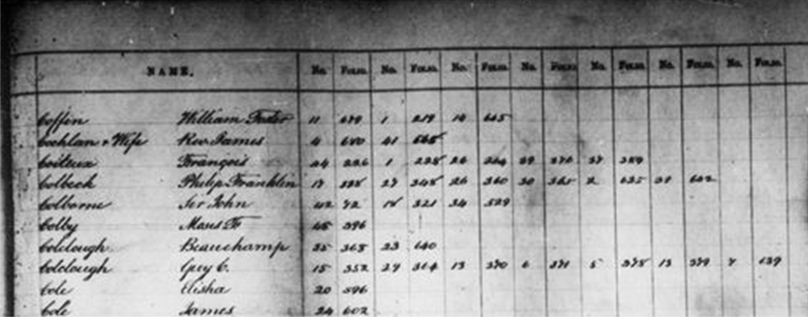 NAME. No. FOLIO. No. FOLIO. No. FOLIO. No. FOLIO. No. FOLIO. No. FOLIO. No. FOLIO.
Coffin William Foster 11 679 1 219 14 665
Cochlan & Wife Rev. James 4 680 41 565
Coiteux François 24 226 1 228 26 264 29 276 27 389
Colbeck Philip Franklin 17 27 348 26 360 30 361 2 635 31 652
Colborne Sir John 42 72 14 321 34 529
Colby Moses F. 45 596
Colclough Beauchamp 25 368 23 640
Colclough Guy C. 15 352 27 364 13 370 6 371 5 378 13 379 7 139
Cole Elisha 20 596
Cole James 24 602